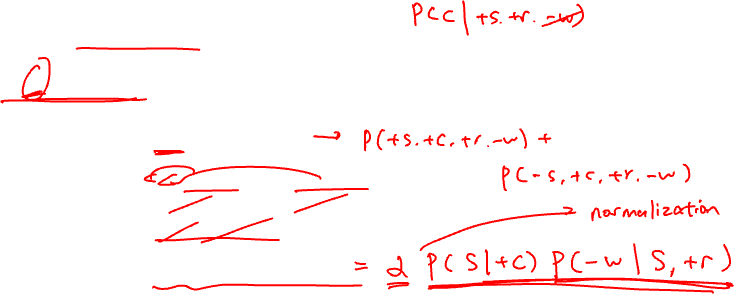 P(C|+s.+r.-w)
→ P(+s.+c.+r.-w) +
P(-s,+c,+r.-w)
normalization
= α P(S|+c) P(-w|S,+r)